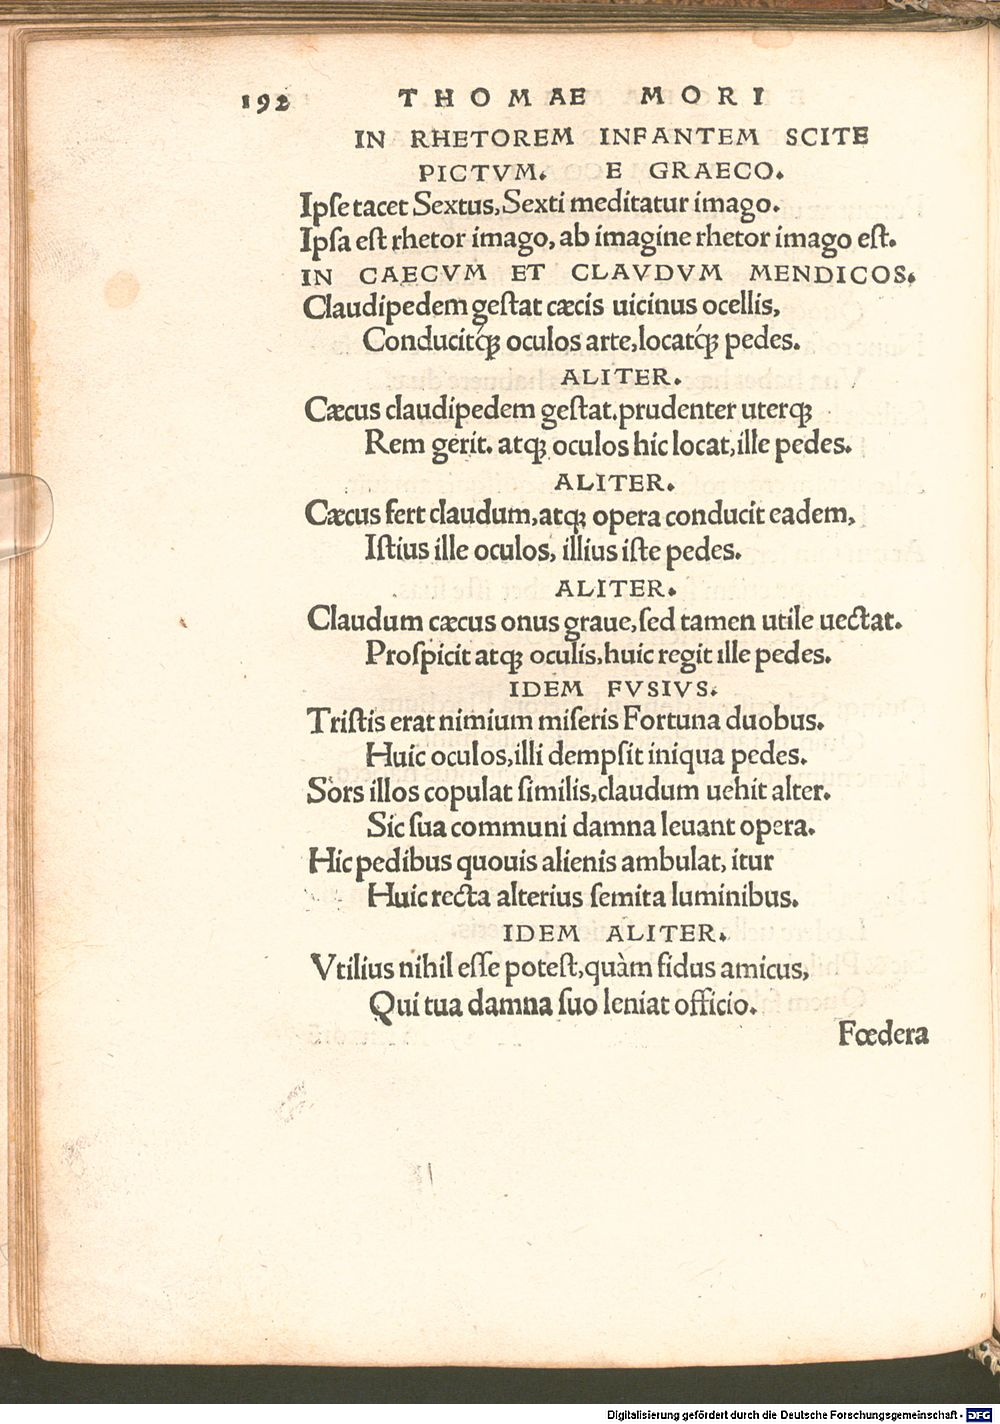 192 THOMAE MORI
IN RHETOREM INFANTEM SCITE
PICTVM. E GRAECO.
Ipſe tacet Sextus, Sexti meditatur imago.
Ipſa eſt rhetor imago, ab imagine rhetor imago eſt.
IN CAECVM ET CLAVDVM MENDICOS.
Claudipedem geſtat cæcis uicinus ocellis,
Conducitq́ꝫ oculos arte, locatq́ꝫ pedes.
ALITER.
Cæcus claudipedem geſtat. prudenter uterqꝫ
Rem gerit. atqꝫ oculos hic locat, ille pedes.
ALITER.
Cæcus fert claudum, atqꝫ opera conducit eadem,
Iſtius ille oculos, illius iſte pedes.
ALITER.
Claudum cæcus onus graue, ſed tamen utile uectat.
Proſpicit atqꝫ oculis, huic regit ille pedes.
IDEM FVSIVS.
Triſtis erat nimium miſeris Fortuna duobus.
Huic oculos, illi dempſit iniqua pedes.
Sors illos copulat ſimilis, claudum uehit alter.
Sic ſua communi damna leuant opera.
Hic pedibus quouis alienis ambulat, itur
Huic recta alterius ſemita luminibus.
IDEM ALITER.
Vtilius nihil eſſe poteſt, quàm fidus amicus,
Qui tua damna ſuo leniat officio.
Fœdera
Digitalisierung gefördert durch die Deutsche Forschungsgemeinschaft - DFG